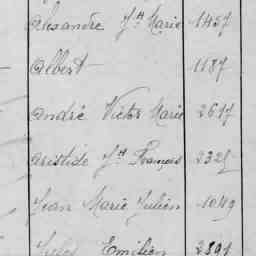 Alexandre Jh Marie 1457
Albert 1187
André Victor Marie 2617
Aristide Jh François
Jean Marie Julien 1049
Jules Emilien 2891